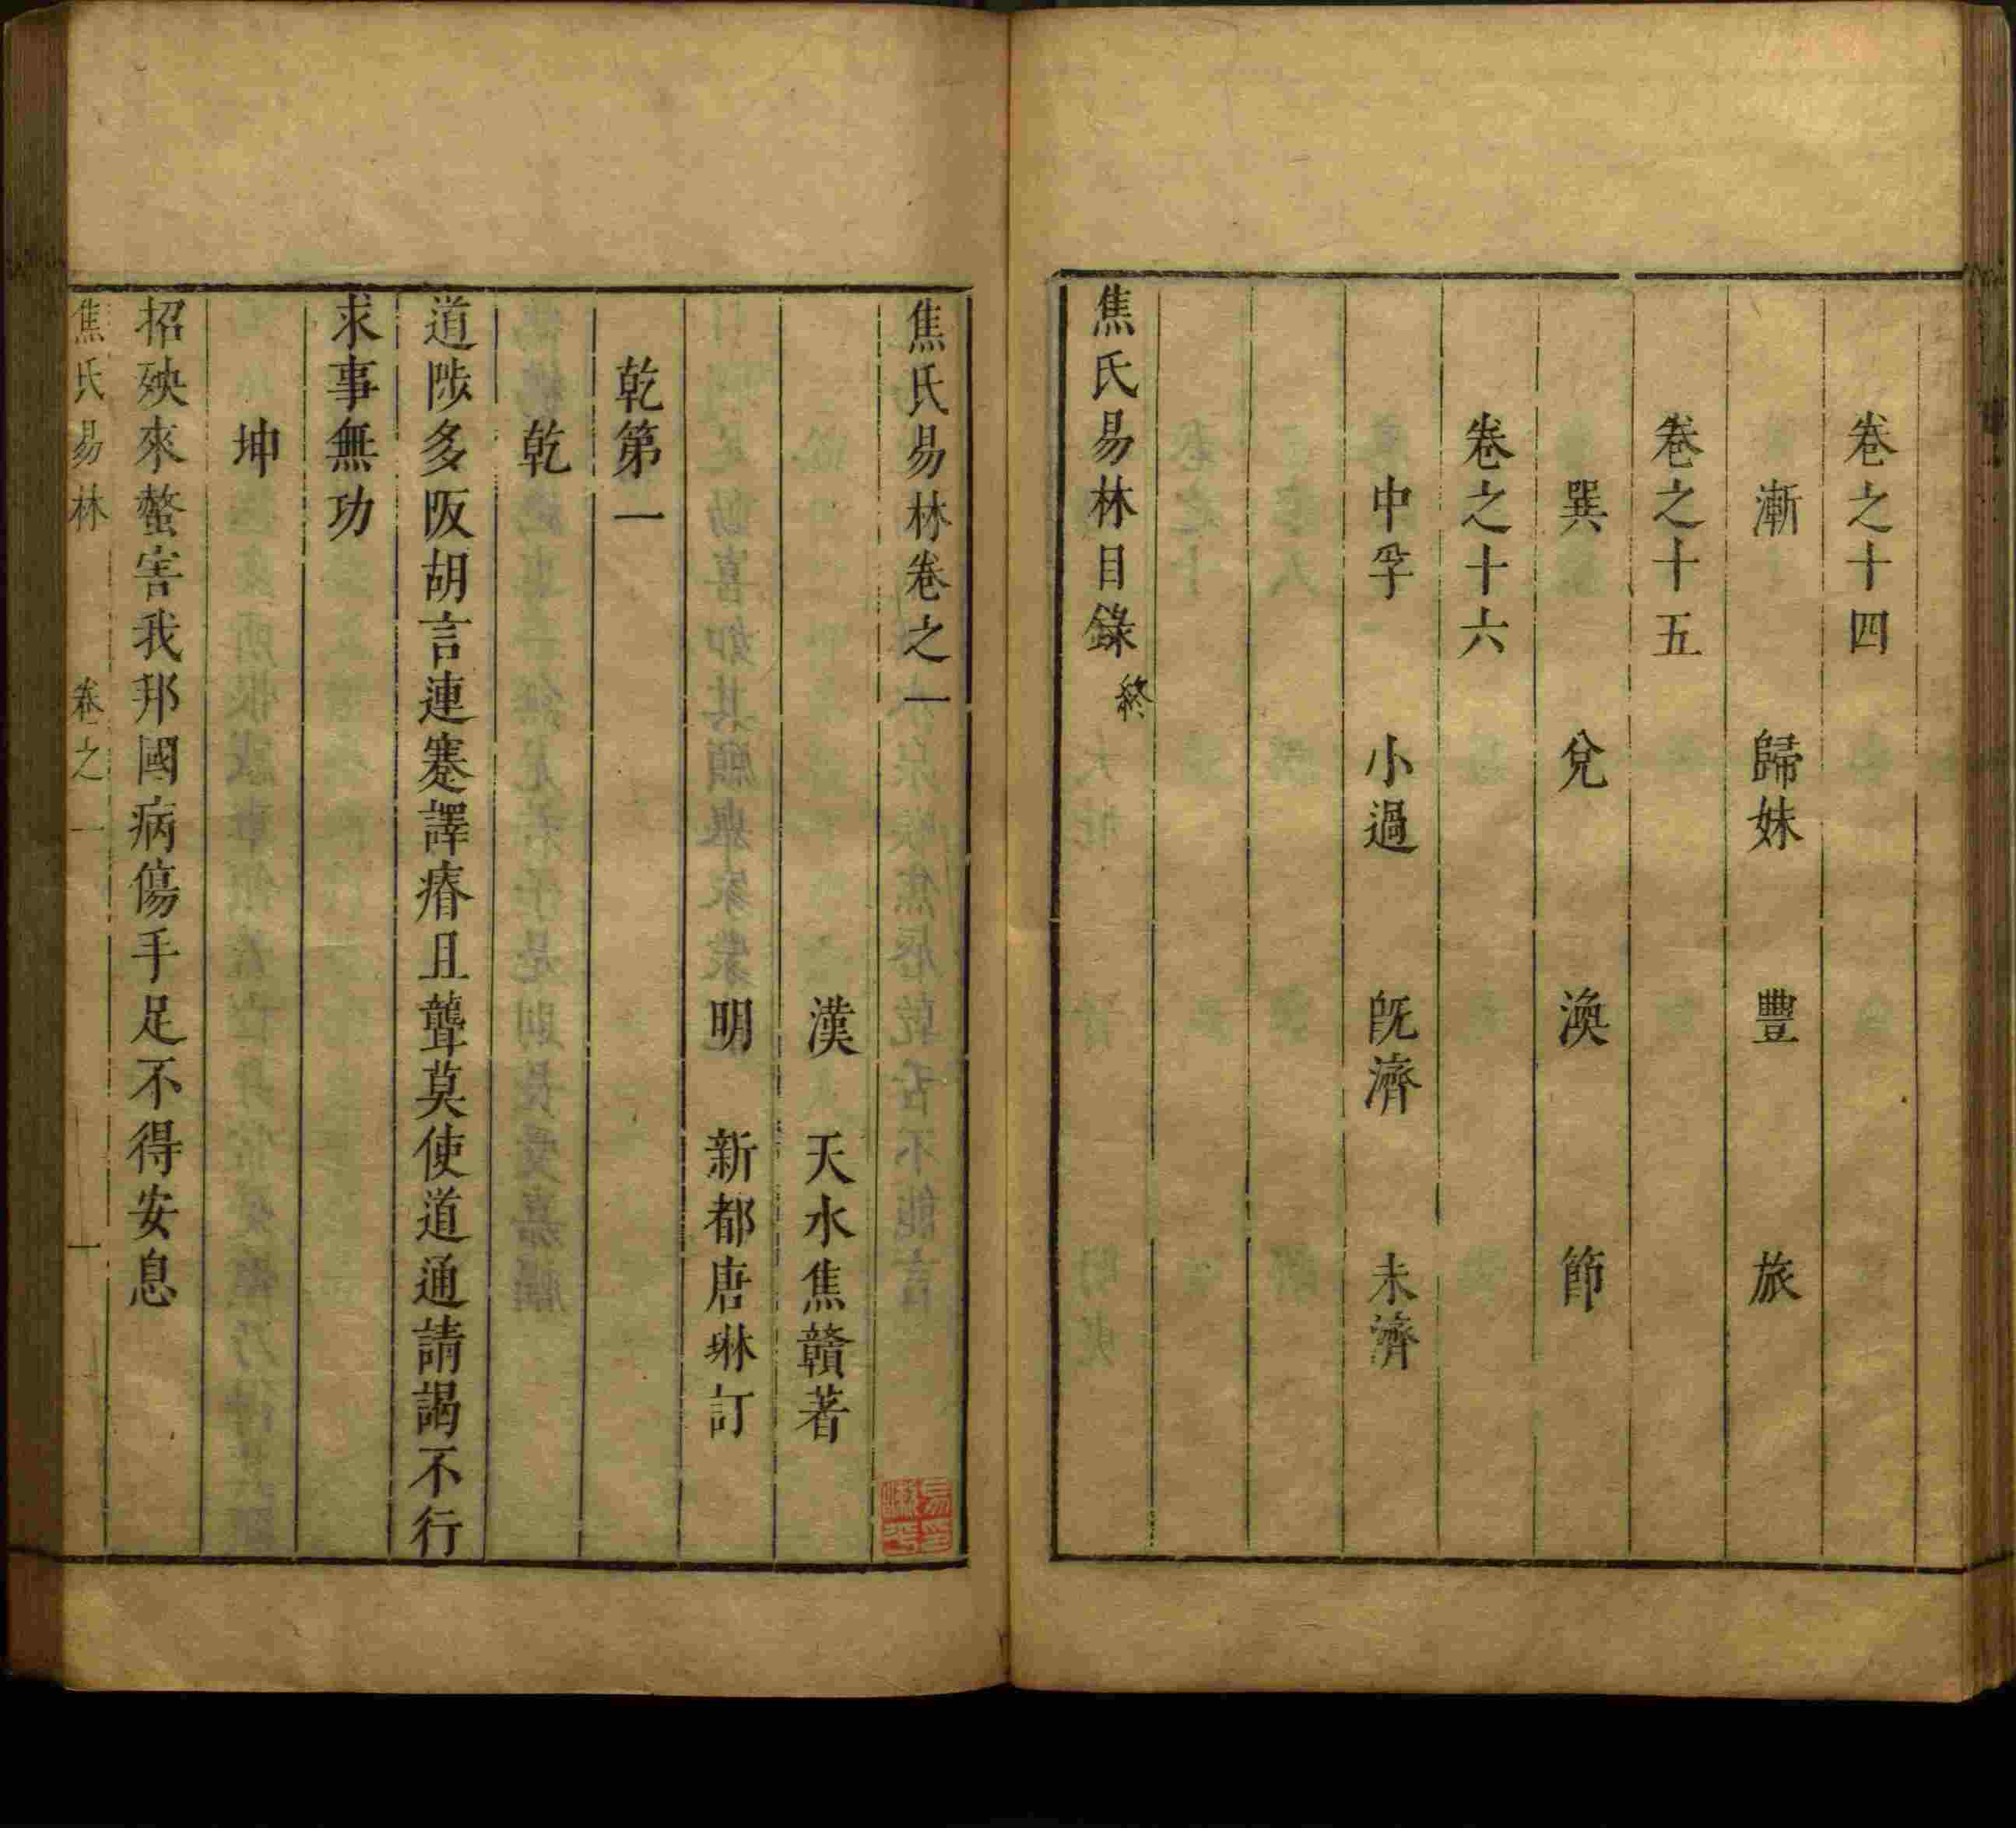 卷之十四
漸　歸妹　豐　旅
卷之十五
巽　兌　渙　節
卷之十六
中孚　小過　旣濟　未濟
焦氏易林目錄終
焦氏易林卷之一
漢　天水焦贛著
明　新都唐琳訂
乾第一
乾
道陟多阪胡言連蹇譯瘖且聾莫使道通請謁不行
求事無功
坤
招殃來螫害我邦國病傷手足不得安息
焦氏易林　卷之一　一